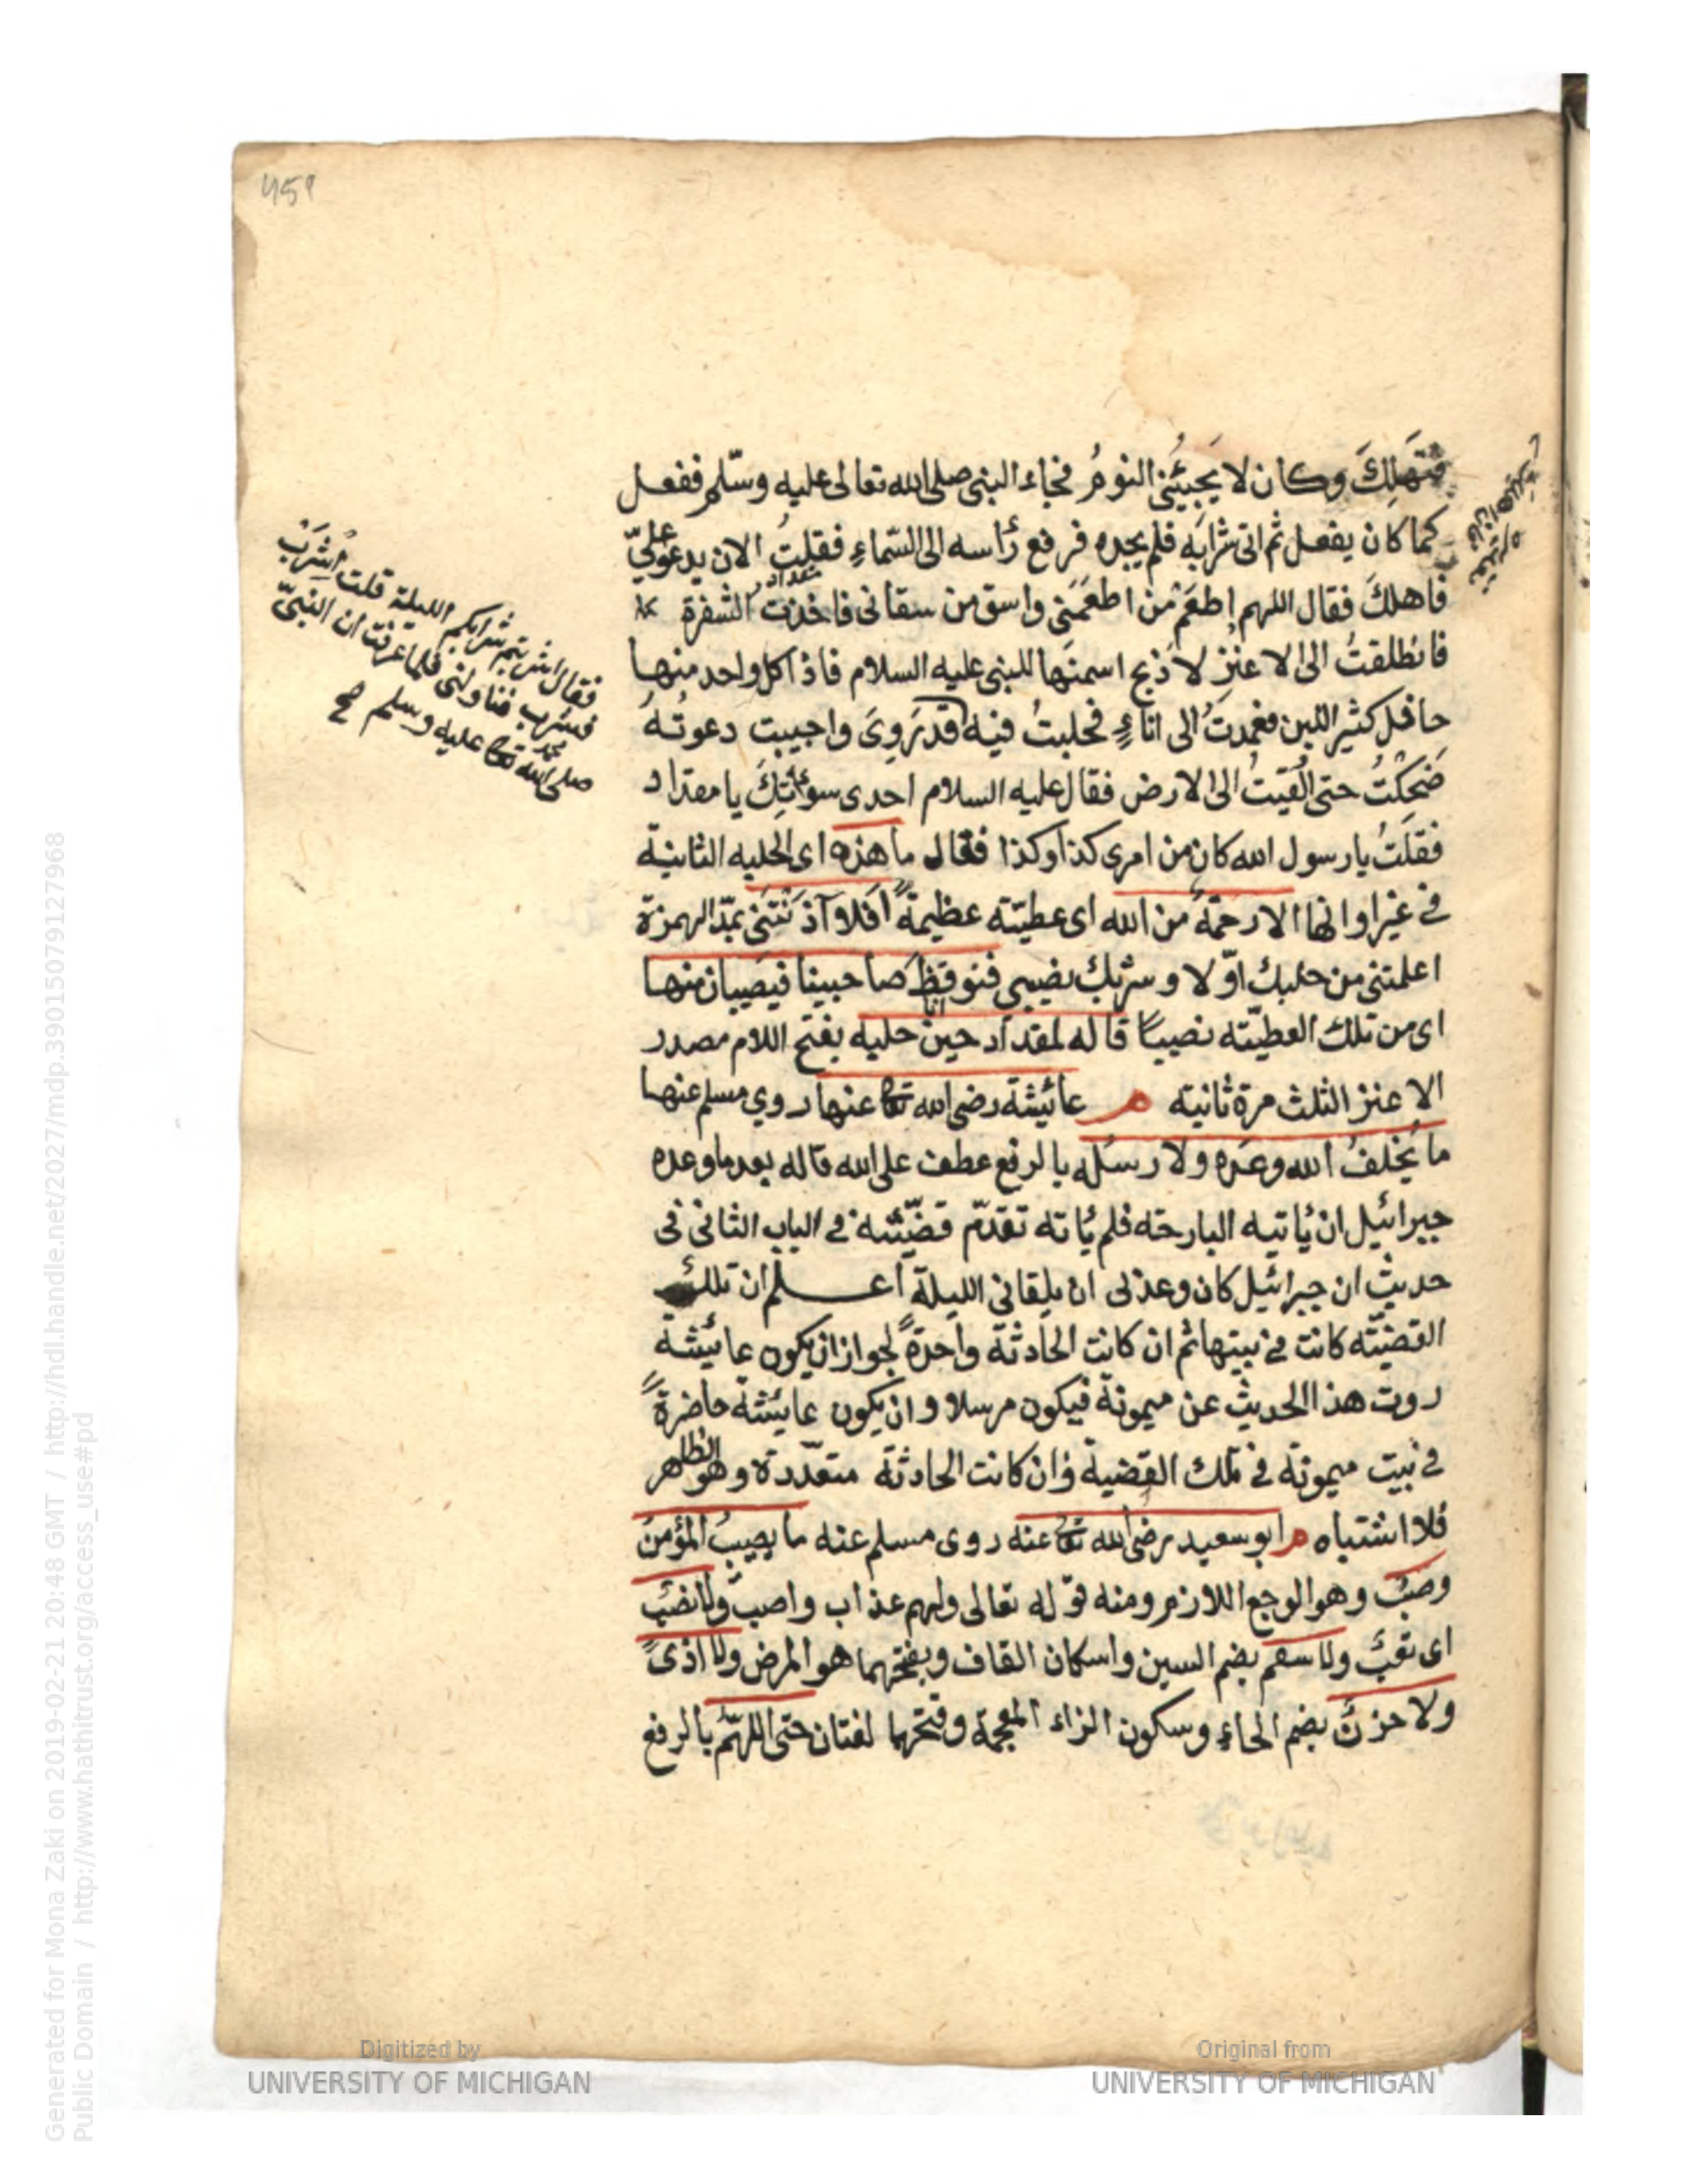 459
فتهلك وكان لا يجيئني النوم فجاء النبي صلى الله تعالى عليه وسلم ففعل
كما كان يفعل ثم اتى شرابه فلم يجده فرفع رأسه الى السماء فقلت الان يدعو علي
فاهلك فقال اللهم اطعم من اطعمني واسق من سقاني فاخذت الشفرة
فانطلقت الى الاعنز لاذبح اسمنها للنبي عليه السلام فاذا كل واحد منها
حافل كثير اللبن فعمدت الى اناء فحلبت فيه قد روى واجيبت دعوته
ضحكت حتى القيت الى الارض فقال عليه السلام احدى سوءاتك يا مقداد
فقلت يا رسول الله كان من امرى كذا وكذا فقال ما هذه اى الحليه الثانية
في غير اوانها الا رحمة من الله اى عطيته عظيمة افلا آذنتني بمد الهمزة
اعلمتني من حلبك اولا وشربك نصيبي فنوقظ صاحبينا فيصيبان منها
اى من تلك العطيته نصيبا قاله لمقداد حين حليه بفتح اللام مصدر
الاعنز الثلث مرة ثانيته م عائيشة رضى الله تع عنها روي مسلم عنها
ما يخلف الله وعده ولا رسله بالرفع عطف على الله قاله بعد ما وعده
جبرائيل ان يأتيه البارحته فلم يأته تقدم قضيته في الباب الثاني في
حديث ان جبرائيل كان وعدني ان يلقاني الليلة اعلم ان تلك
القضيته كانت في بيتها ثم ان كانت الحادثة واحدة لجواز ان يكون عائيشة
روت هذا الحديث عن ميمونة فيكون مرسلا وان يكون عائيشة حاضرة
في بيت ميمونة في تلك القضية وان كانت الحادثة متعددة وهو الظاهر
فلا اشتباه م ابو سعيد رضى الله تع عنه روى مسلم عنه ما يصيب المؤمن
وصب وهو الوجع اللازم ومنه قوله تعالى ولهم عذاب واصب ولا نصب
اى تعب ولا سقم بضم السين واسكان القاف وبفتحهما هو المرض ولا اذى
ولا حزن بضم الحاء وسكون الزاء المعجمة وفتحهما لغتان حتى اللهم بالرفع
فقال اشربتم شرابكم الليلة قلت اشرب
فشرب فناولني فلما عرفت ان النبي
صلى الله تع عليه وسلم صح
Generated for Mona Zaki on 2019-02-21 20:48 GMT / http://hdl.handle.net/2027/mdp.39015079127968
Public Domain / http://www.hathitrust.org/access_use#pd
Digitized by
UNIVERSITY OF MICHIGAN
Original from
UNIVERSITY OF MICHIGAN